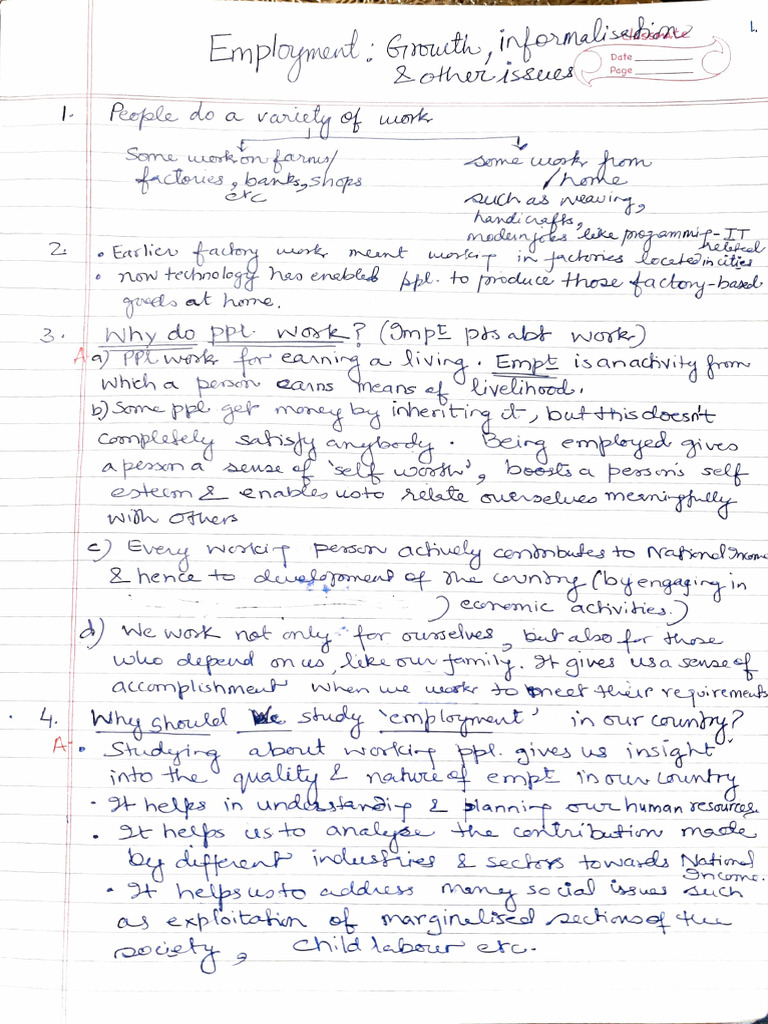 1.
Employment: Growth, informalisation
& other issues
Date
Page
1. People do a variety of work
Some work on farms/
factories, banks, shops
etc
some work from
home
such as weaving,
handicrafts,
modern jobs like programmig - IT
related
2. • Earlier factory work meant working in factories located in cities
• now technology has enabled ppl. to produce those factory-based
goods at home.
3. Why do ppl. work? (Impt pts abt work)
A a) ppl work for earning a living. Empt is an activity from
which a person earns means of livelihood.
b) Some ppl get money by inheriting it, but this doesn't
completely satisfy anybody. Being employed gives
a person a sense of 'self worth', boosts a person's self
esteem & enables us to relate ourselves meaningfully
with others
c) Every working person actively contributes to National Income
& hence to development of the country (by engaging in
) economic activities.)
d) We work not only for ourselves, but also for those
who depend on us, like our family. It gives us a sense of
accomplishment when we work to meet their requirements
4. Why should We study 'employment' in our country?
A • Studying about working ppl. gives us insight
into the quality & nature of empt in our country
• It helps in understanding & planning our human resources.
• It helps us to analyse the contribution made
by different industries & sectors towards National
Income.
• It helps us to address many social issues such
as exploitation of marginalised sections of the
society, child labour etc.